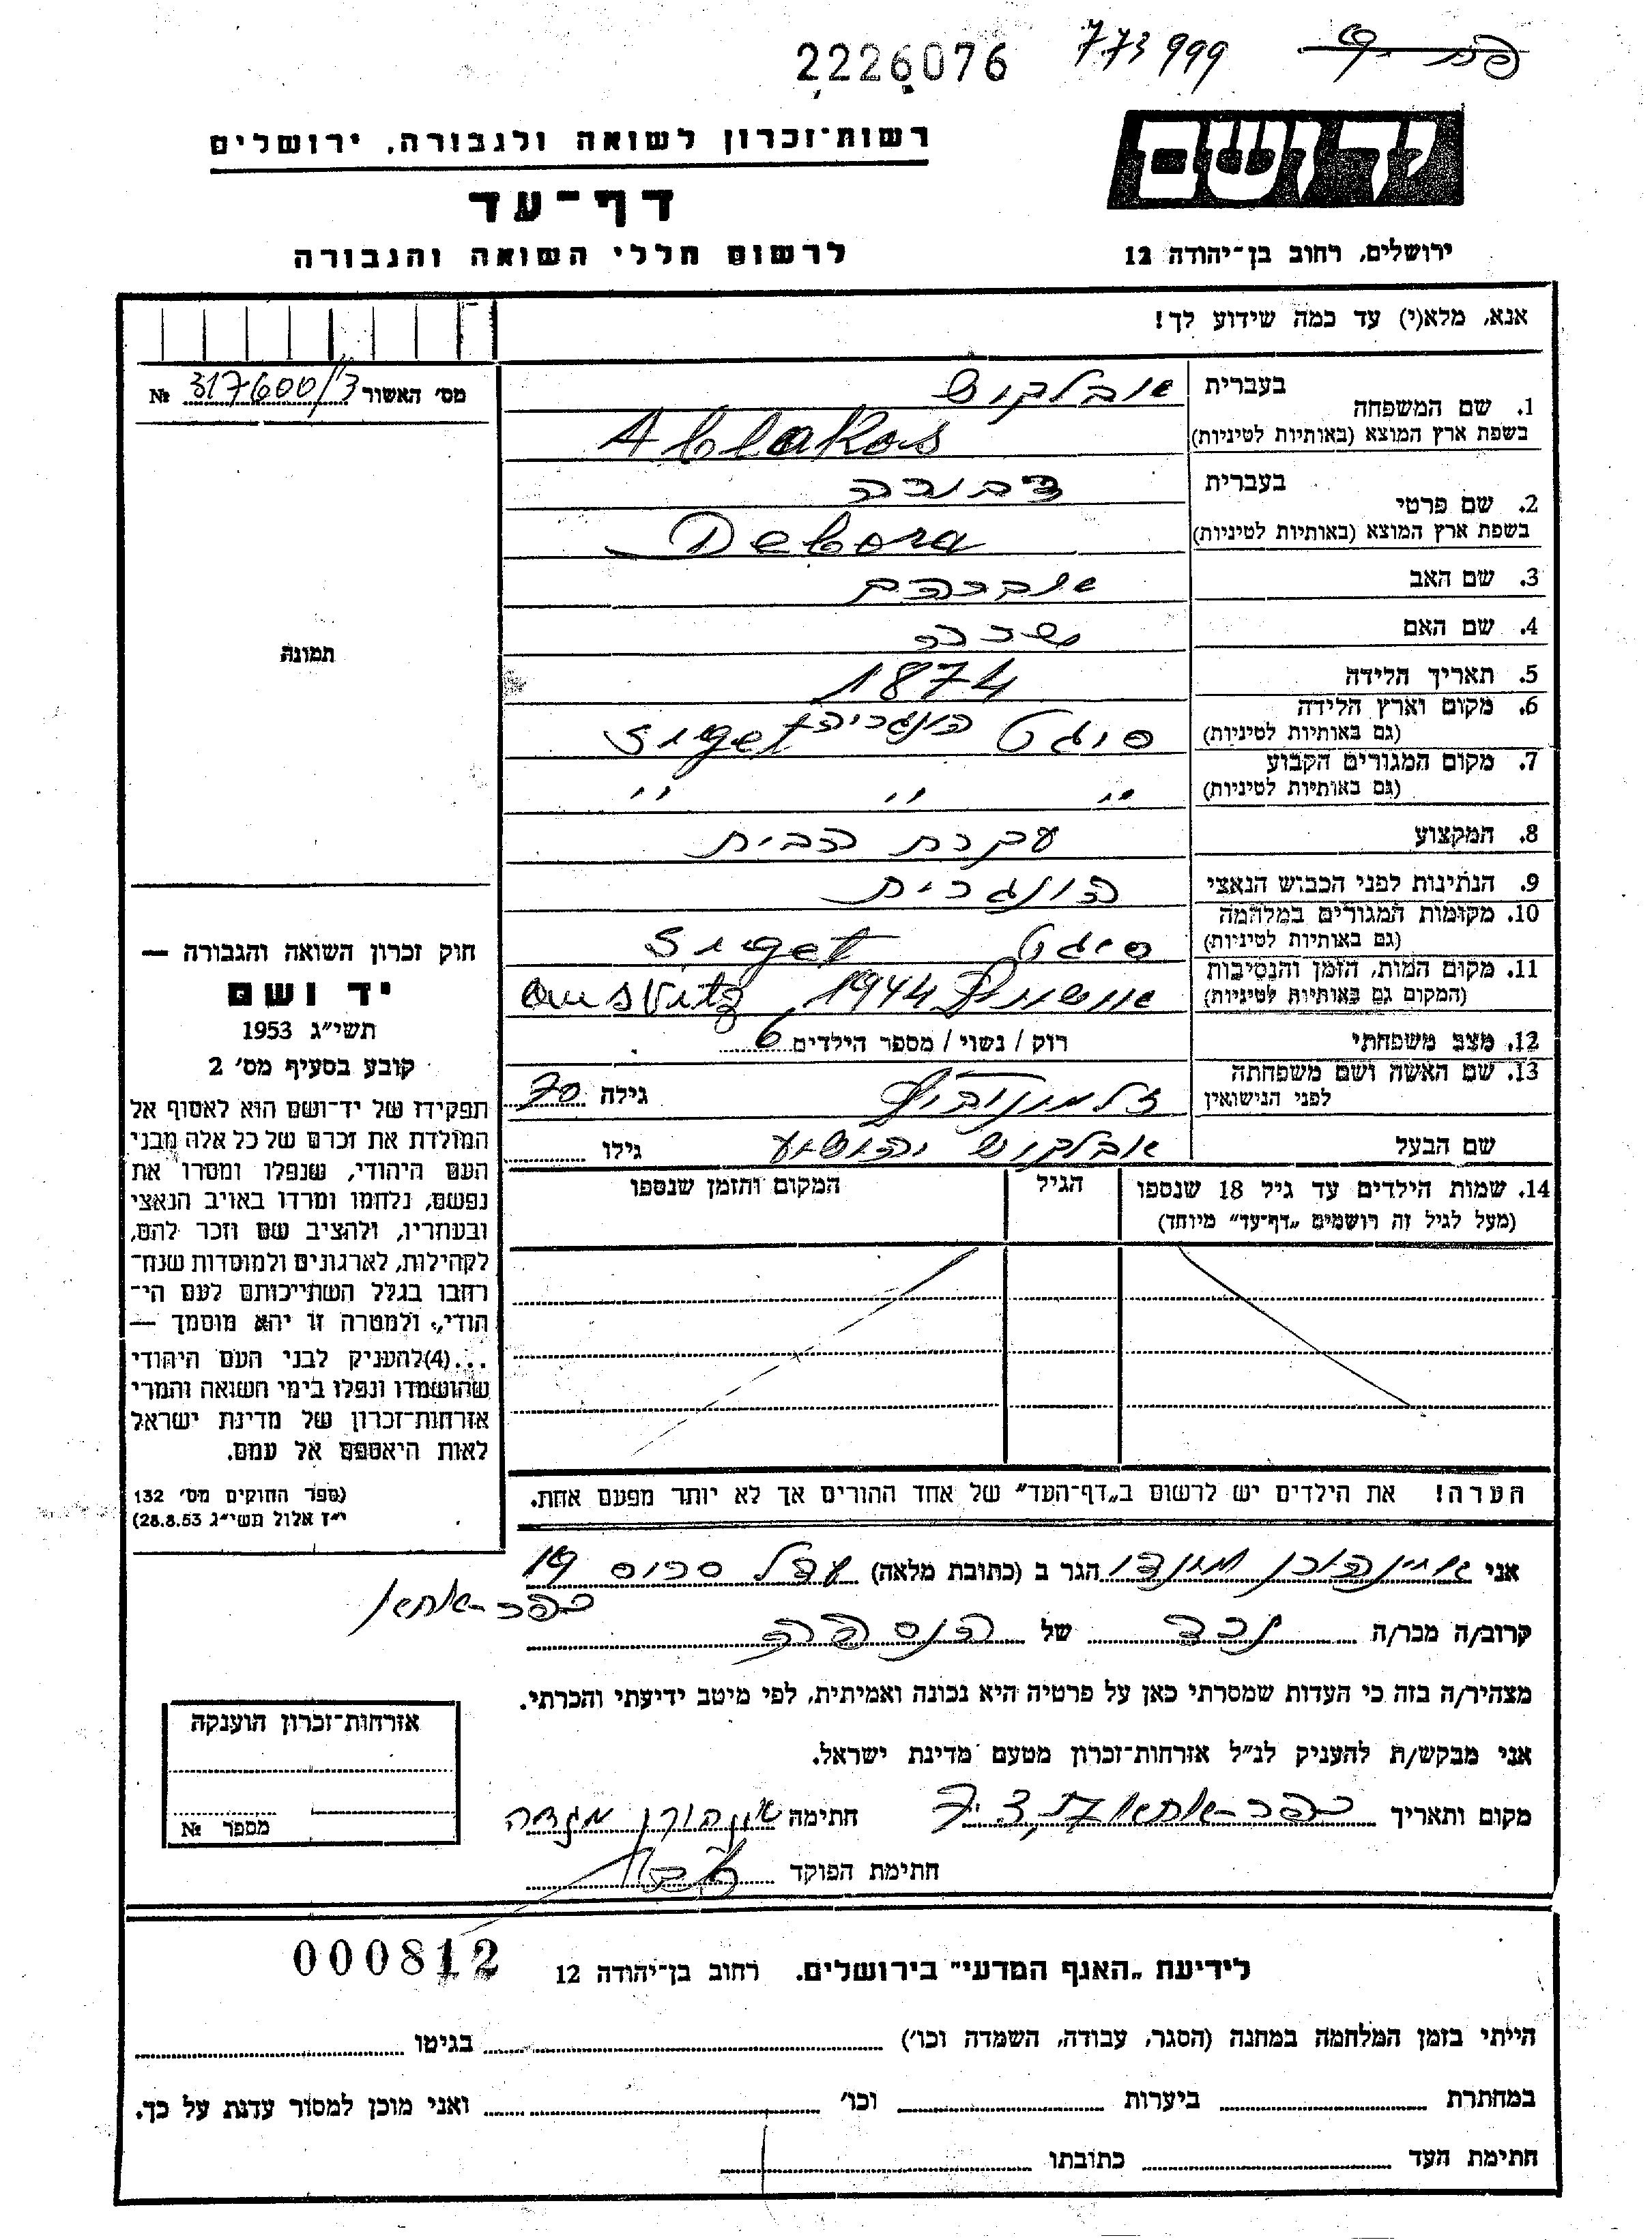 2226076 773999
יד ושם
רשות־זכרון לשואה ולגבורה, ירושלים
דף־עד
לרשום חללי השואה והגבורה
ירושלים, רחוב בן־יהודה 12
אנא, מלא(י) עד כמה שידוע לך!
מס׳ האשור 317600/3 №
תמונה
1. שם המשפחה
בעברית אבלקוש
בשפת ארץ המוצא (באותיות לטיניות) Ablakos
2. שם פרטי
בעברית דבורה
בשפת ארץ המוצא (באותיות לטיניות) Debora
3. שם האב אברהם
4. שם האם שרה
5. תאריך הלידה 1874
6. מקום וארץ הלידה סיגט הונגריה Siget
(גם באותיות לטיניות)
7. מקום המגורים הקבוע " " "
(גם באותיות לטיניות)
8. המקצוע עקרת הבית
9. הנתינות לפני הכבוש הנאצי הונגרית
10. מקומות המגורים במלחמה סיגט Siget
(גם באותיות לטיניות)
11. מקום המות, הזמן והנסיבות אושוויץ 1944 Ausvitz
(המקום גם באותיות לטיניות)
12. מצב משפחתי רוק / נשוי / מספר הילדים 6
13. שם האשה ושם משפחתה
לפני הנישואין זלמנוביץ גילה 70
שם הבעל אבלקוש יהושע גילו
14. שמות הילדים עד גיל 18 שנספו הגיל המקום והזמן שנספו
(מעל לגיל זה רושמים „דף־עד" מיוחד)
הערה! את הילדים יש לרשום ב„דף־העד" של אחד ההורים אך לא יותר מפעם אחת.
חוק זכרון השואה והגבורה —
יד ושם
תשי״ג 1953
קובע בסעיף מס׳ 2
תפקידו של יד־ושם הוא לאסוף אל
המולדת את זכרם של כל אלה מבני
העם היהודי, שנפלו ומסרו את
נפשם, נלחמו ומרדו באויב הנאצי
ובעוזריו, ולהציב שם וזכר להם,
לקהילות, לארגונים ולמוסדות שנח־
רבו בגלל השתייכותם לעם הי־
הודי, ולמטרה זו יהא מוסמך —
...(4) להעניק לבני העם היהודי
שהושמדו ונפלו בימי השואה והמרי
אזרחות־זכרון של מדינת ישראל
לאות היאספם אל עמם.
(ספר החוקים מס׳ 132
י״ז אלול תשי״ג 28.8.53)
אני הגר ב (כתובת מלאה) 19
כפר-אתא
קרוב/ה מכר/ה נכד של הנספה
מצהיר/ה בזה כי העדות שמסרתי כאן על פרטיה היא נכונה ואמיתית, לפי מיטב ידיעתי והכרתי.
אני מבקש/ת להעניק לנ״ל אזרחות־זכרון מטעם מדינת ישראל.
מקום ותאריך כפר-אתא חתימה
חתימת הפוקד
אזרחות־זכרון הוענקה
מספר №
000812
לידיעת „האגף המדעי" בירושלים. רחוב בן־יהודה 12
הייתי בזמן המלחמה במחנה (הסגר, עבודה, השמדה וכו׳) בגיטו
במחתרת ביערות וכו׳ ואני מוכן למסור עדות על כך.
חתימת העד כתובתו